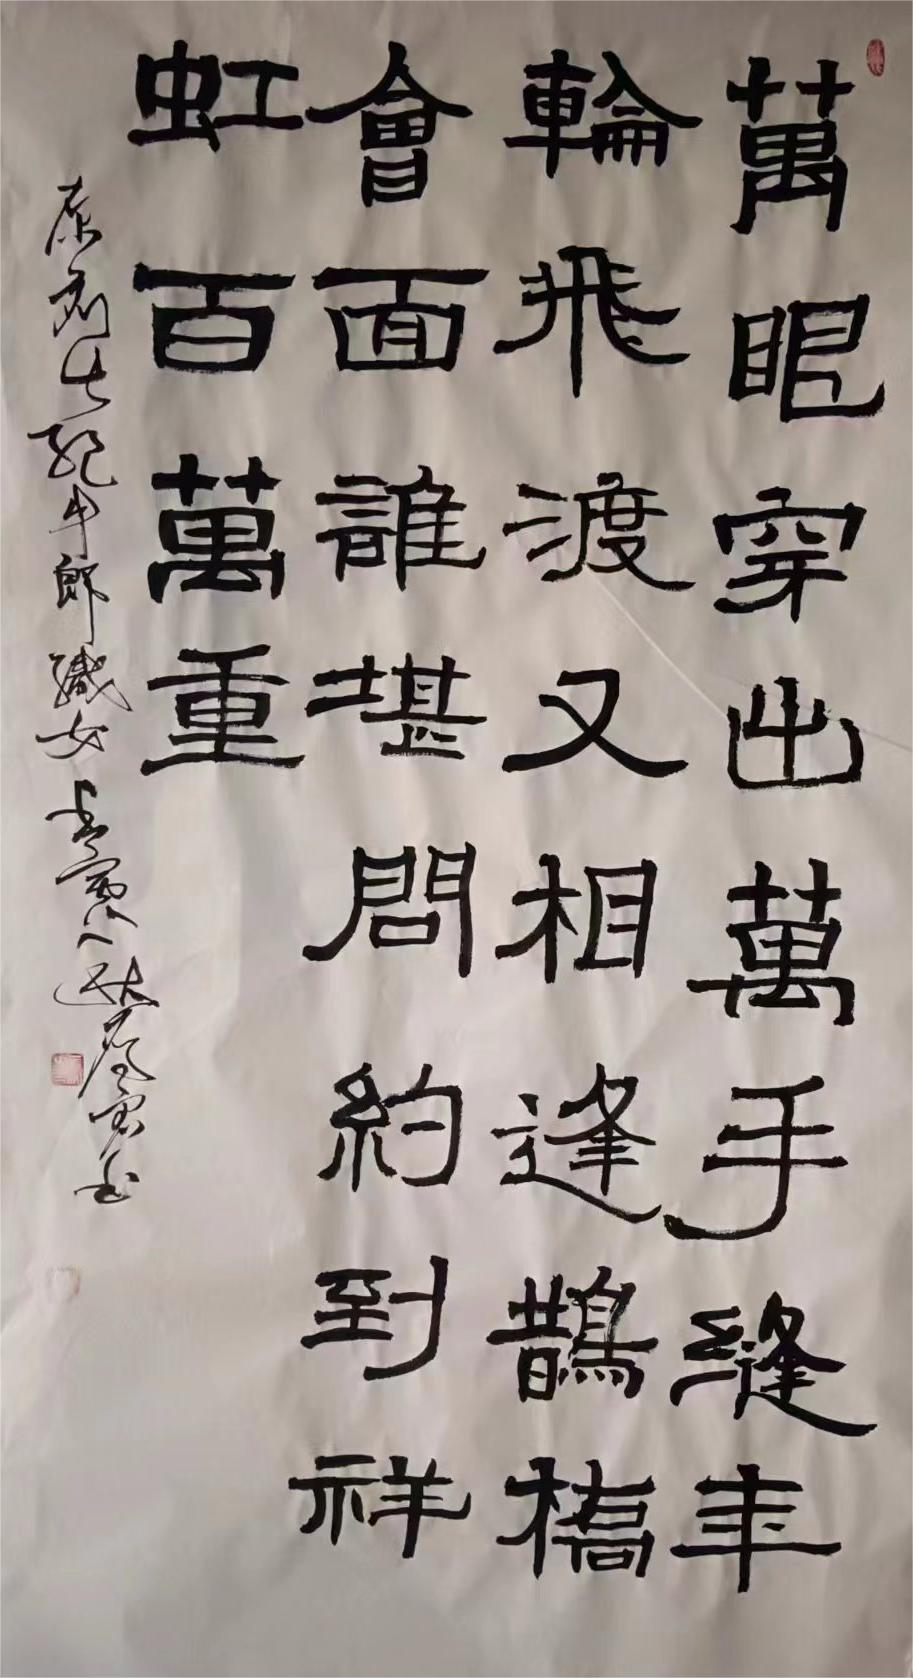 萬眼穿出萬手縫年
輪飛渡又相逢鵲橋
會面誰堪問約到祥
虹百萬重
牛郎織女